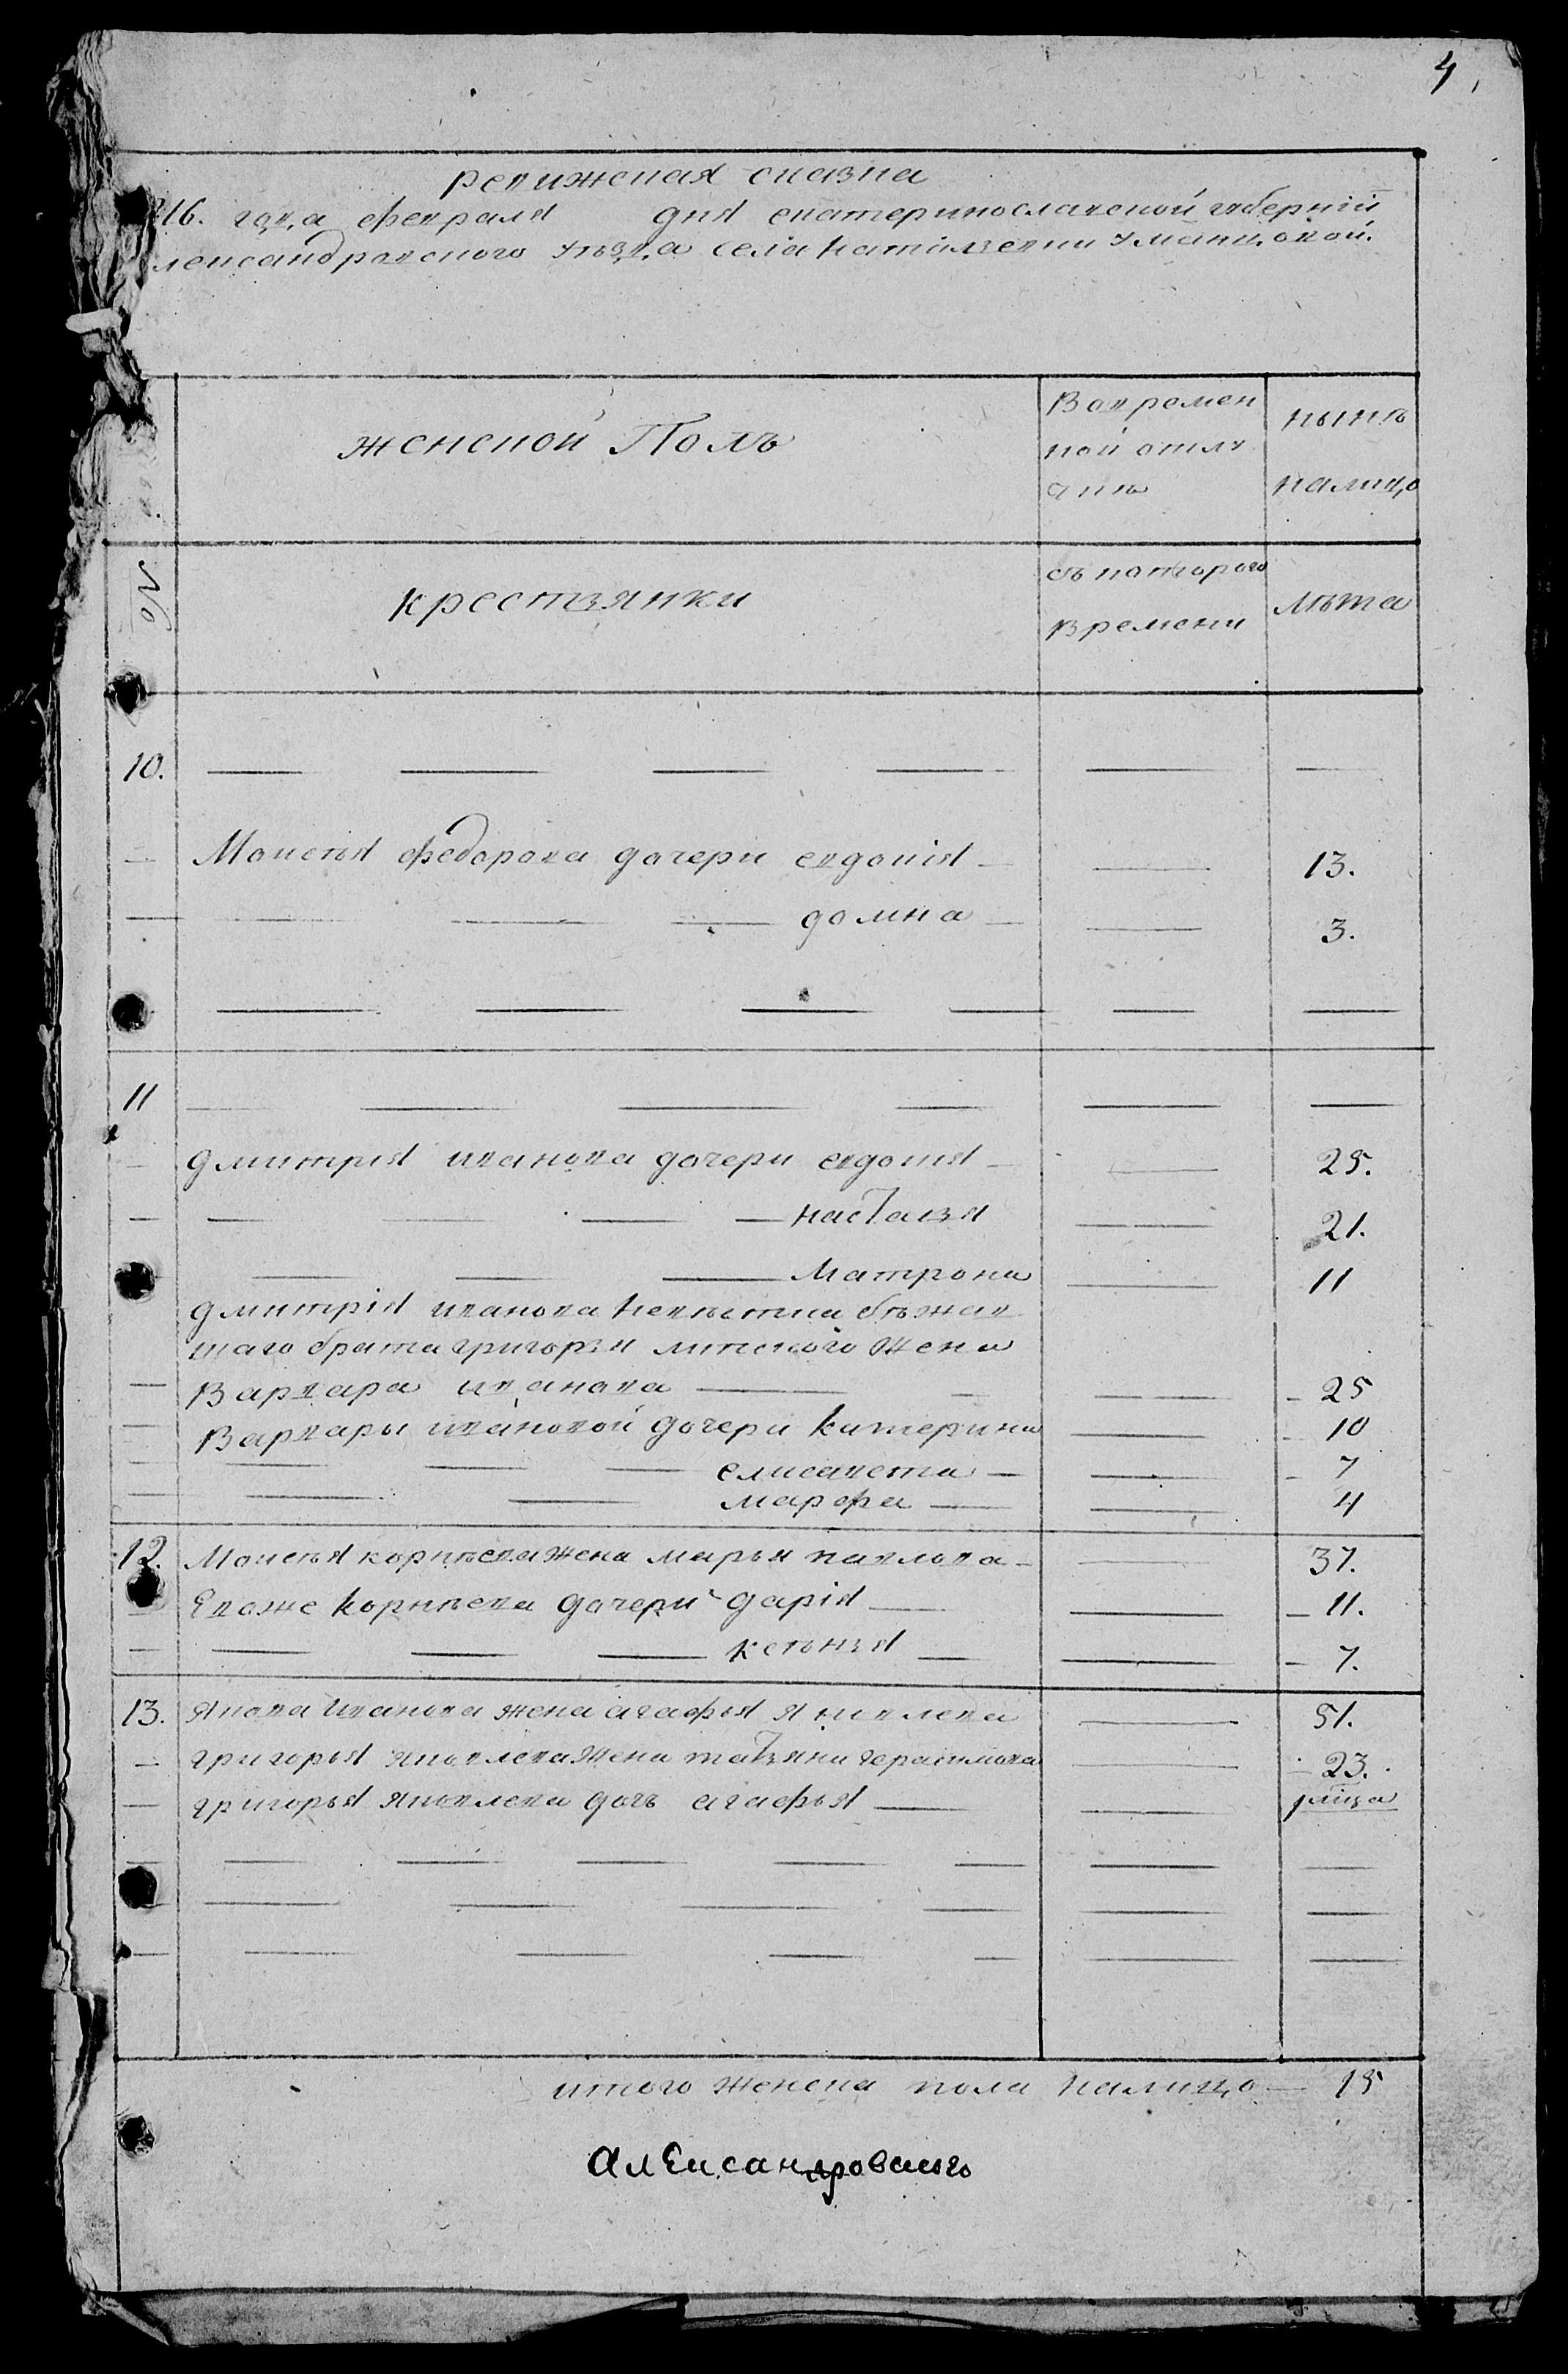 4
ревижская сказка
816. года февраля дня екатеринославской губернии
лександравского уезда села натальевки
женской Полъ
Вовремен
ной отлу
чкѣ
нынѣ
налицо
№
крестзянки
съ которого
времени
лѣта
10.
Моисѣя федорова дочери евдокия 13.
домна 3.
11
дмитрия иванова дочери евдокия 25.
настазя 21.
Матрона 11
дмитрія иванова невѣстка бѣжав
шаго брата григорзя жена
Варвара иванова 25
Варвары ивановой дочери катерина 10
елисавета 7
марфа 4
12. Моисѣя корнѣева жена марья павлова 37.
Евоже корнѣева дочери дарія 11.
ксѣнзя 7.
13. Якова иванова жена агафья яковлева 51.
григорья яковлева жена татзяна герасимова 23.
григорья яковлева дочь агафья
итого женска пола налицо 15
алЕксандровског